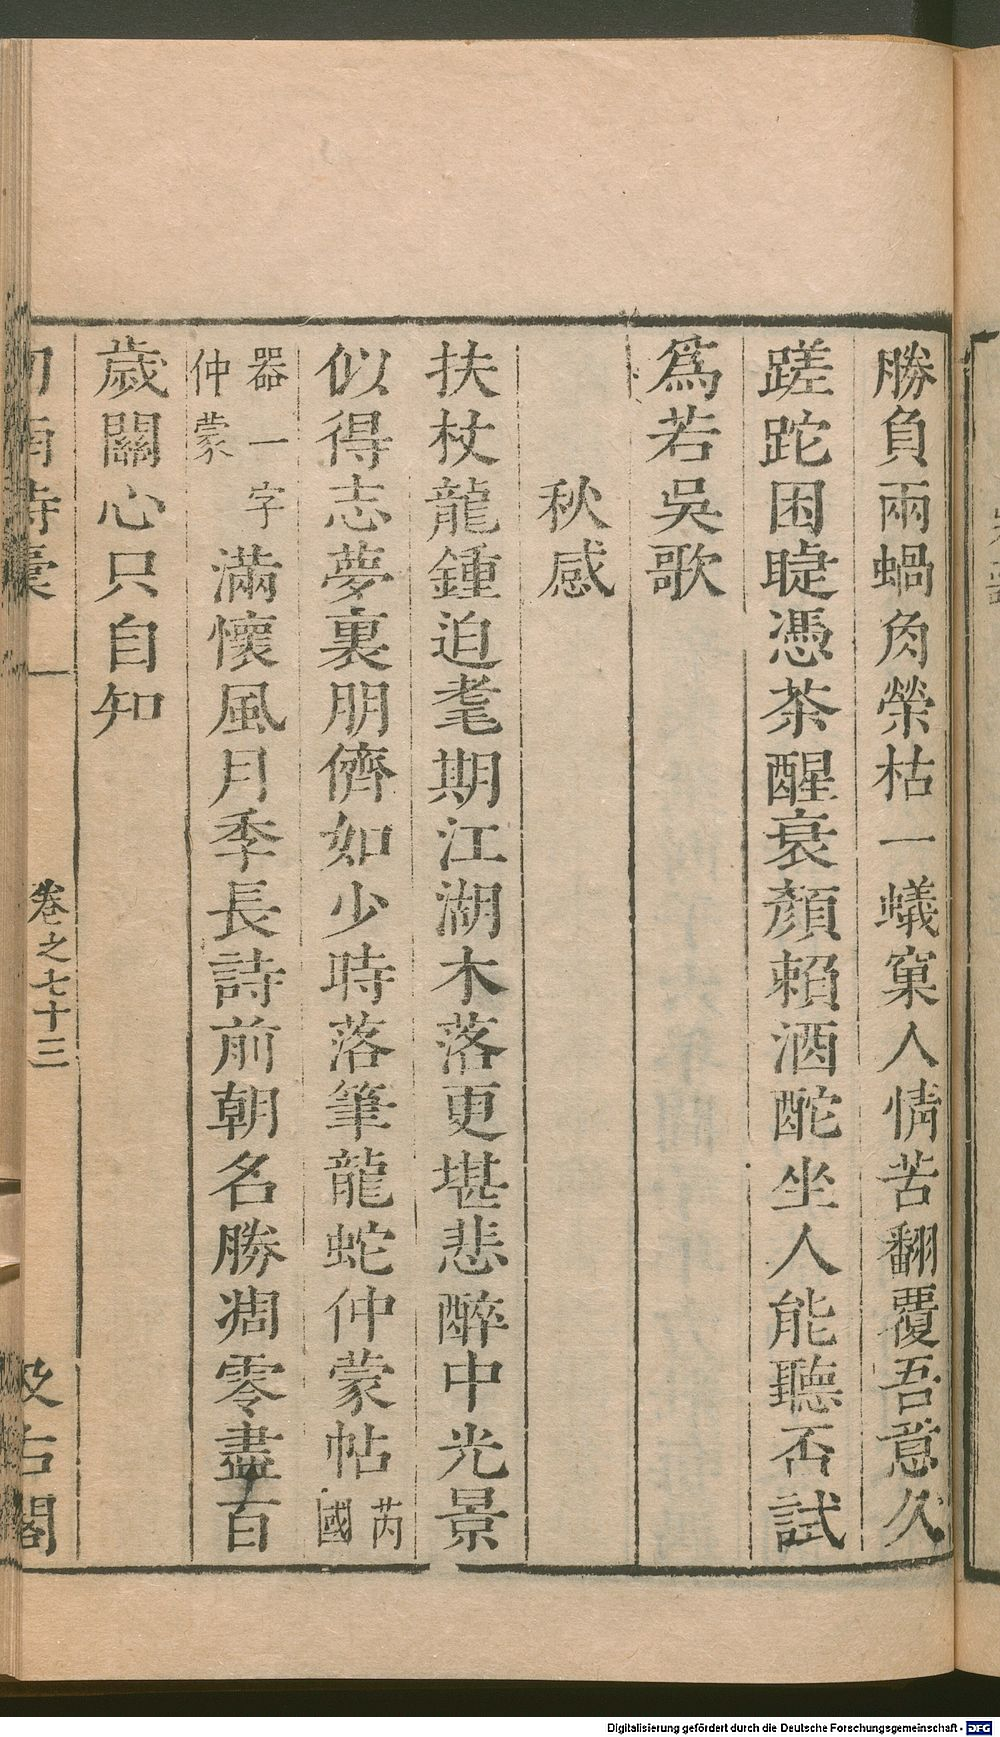 勝負兩蝸角榮枯一蟻窠人情苦翻覆吾意久
蹉跎困睫憑茶醒衰顏賴酒酡坐人能聽否試
爲若吳歌
秋感
扶杖龍鍾迫耄期江湖木落更堪悲醉中光景
似得志夢裏朋儕如少時落筆龍蛇仲蒙帖芮
國
器一字
仲蒙
滿懷風月季長詩前朝名勝凋零盡百
歲關心只自知
劍南詩稾
卷之七十三
汲古閣
Digitalisierung gefördert durch die Deutsche Forschungsgemeinschaft - DFG